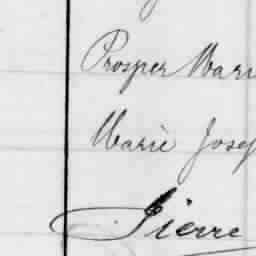 Prosper Mari
Marie Josep
Pierre